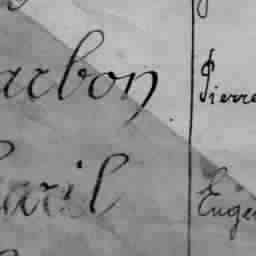 arbon Pierre
aril Euge